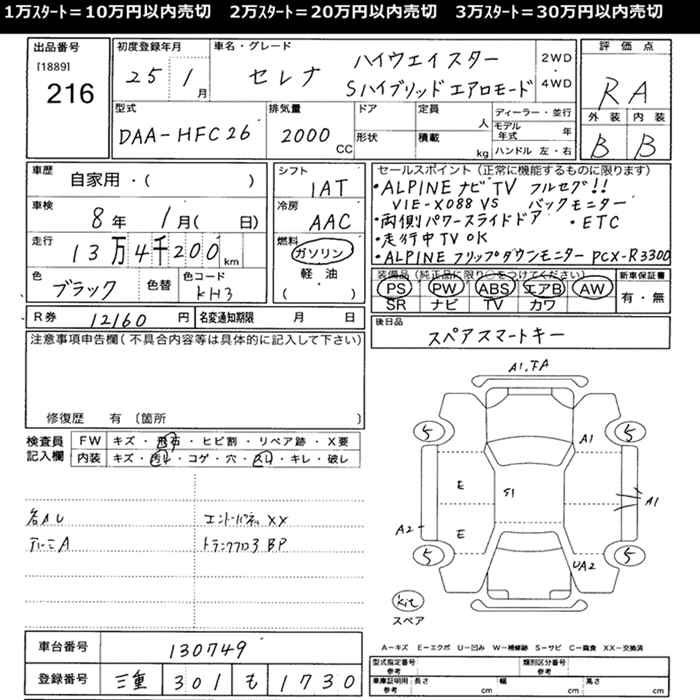 1万ｽﾀｰﾄ＝10万円以内売切　2万ｽﾀｰﾄ＝20万円以内売切　3万ｽﾀｰﾄ＝30万円以内売切
出品番号
[1889]
216
初度登録年月
25 1月
車名・グレード
セレナ
ハイウェイスター
Sハイブリッドエアロモード
2WD
・
4WD
評価点
RA
外装 内装
B B
型式
DAA-HFC26
排気量
2000 CC
ドア
形状
定員 人
積載 kg
ディーラー・並行
モデル年式 年
ハンドル 左・右
車歴
自家用・( )
シフト
IAT
車検
8年 1月( 日)
冷房
AAC
走行
13万4千200km
燃料
ガソリン
軽油
( )
色
ブラック
色替
色コード
KH3
セールスポイント（正常に機能するものに限ります）
・ALPINE ナビ TV フルセグ!!
VIE-X088VS バックモニター
・両側パワースライドドア ・ETC
・走行中TV OK
・ALPINE フリップダウンモニター PCX-R3300
装備品（純正品に限り○をつけてください）
PS PW ABS エアB AW
SR ナビ TV カワ
新車保証書
有・無
R券 12160円
名変通知期限 月 日
後日品
スペアスマートキー
注意事項申告欄（不具合内容等は具体的に記入して下さい）
修復歴 有〔箇所 〕
検査員
記入欄
FW キズ・飛石・ヒビ割・リペア跡・X要
内装 キズ・汚れ・コゲ・穴・スレ・キレ・破レ
各AU
アルミA
エントリーパネル XX
トランクフロア BP
A1,FA
5 5
A1
E
S1
A1
A2
E
5 5
UA2
kit
スペア
A－キズ E－エクボ U－凹み W－補修跡 S－サビ C－腐食 XX－交換済
車台番号 130749
登録番号 三重 301 も 1730
型式指定番号
参考
類別区分番号
参考
車庫証明用
参考
長さ cm 幅 cm 高さ cm